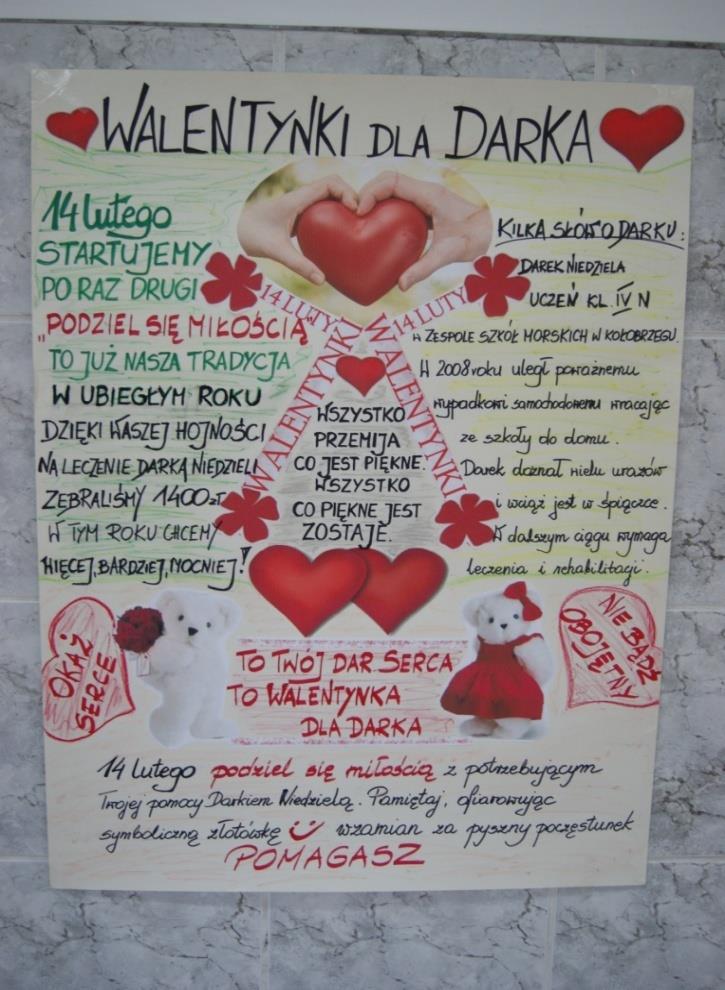 WALENTYNKI DLA DARKA
14 lutego
STARTUJEMY
PO RAZ DRUGI
"PODZIEL SIĘ MIŁOŚCIĄ
TO JUŻ NASZA TRADYCJA
W UBIEGŁYM ROKU
DZIĘKI WASZEJ HOJNOŚCI
NA LECZENIE DARKA NIEDZIELI
ZEBRALIŚMY 1400 zł
W TYM ROKU CHCEMY
WIĘCEJ, BARDZIEJ, MOCNIEJ!
14 LUTY
14 LUTY
WALENTYNKI
WALENTYNKI
WSZYSTKO
PRZEMIJA
CO JEST PIĘKNE.
WSZYSTKO
CO PIĘKNE JEST
ZOSTAJE.
KILKA SŁÓW O DARKU:
DAREK NIEDZIELA
UCZEŃ KL. IV N
W ZESPOLE SZKÓŁ MORSKICH W KOŁOBRZEGU.
W 2008 roku uległ poważnemu
wypadkowi samochodowemu wracając
ze szkoły do domu.
Darek doznał wielu urazów
i wciąż jest w śpiączce.
W dalszym ciągu wymaga
leczenia i rehabilitacji.
OKAŻ
SERCE
TO TWÓJ DAR SERCA
TO WALENTYNKA
DLA DARKA
NIE BĄDŹ
OBOJĘTNY
14 lutego podziel się miłością z potrzebującym
Twojej pomocy Darkiem Niedzielą. Pamiętaj, ofiarowując
symboliczną złotówkę wzamian za pyszny poczęstunek
POMAGASZ